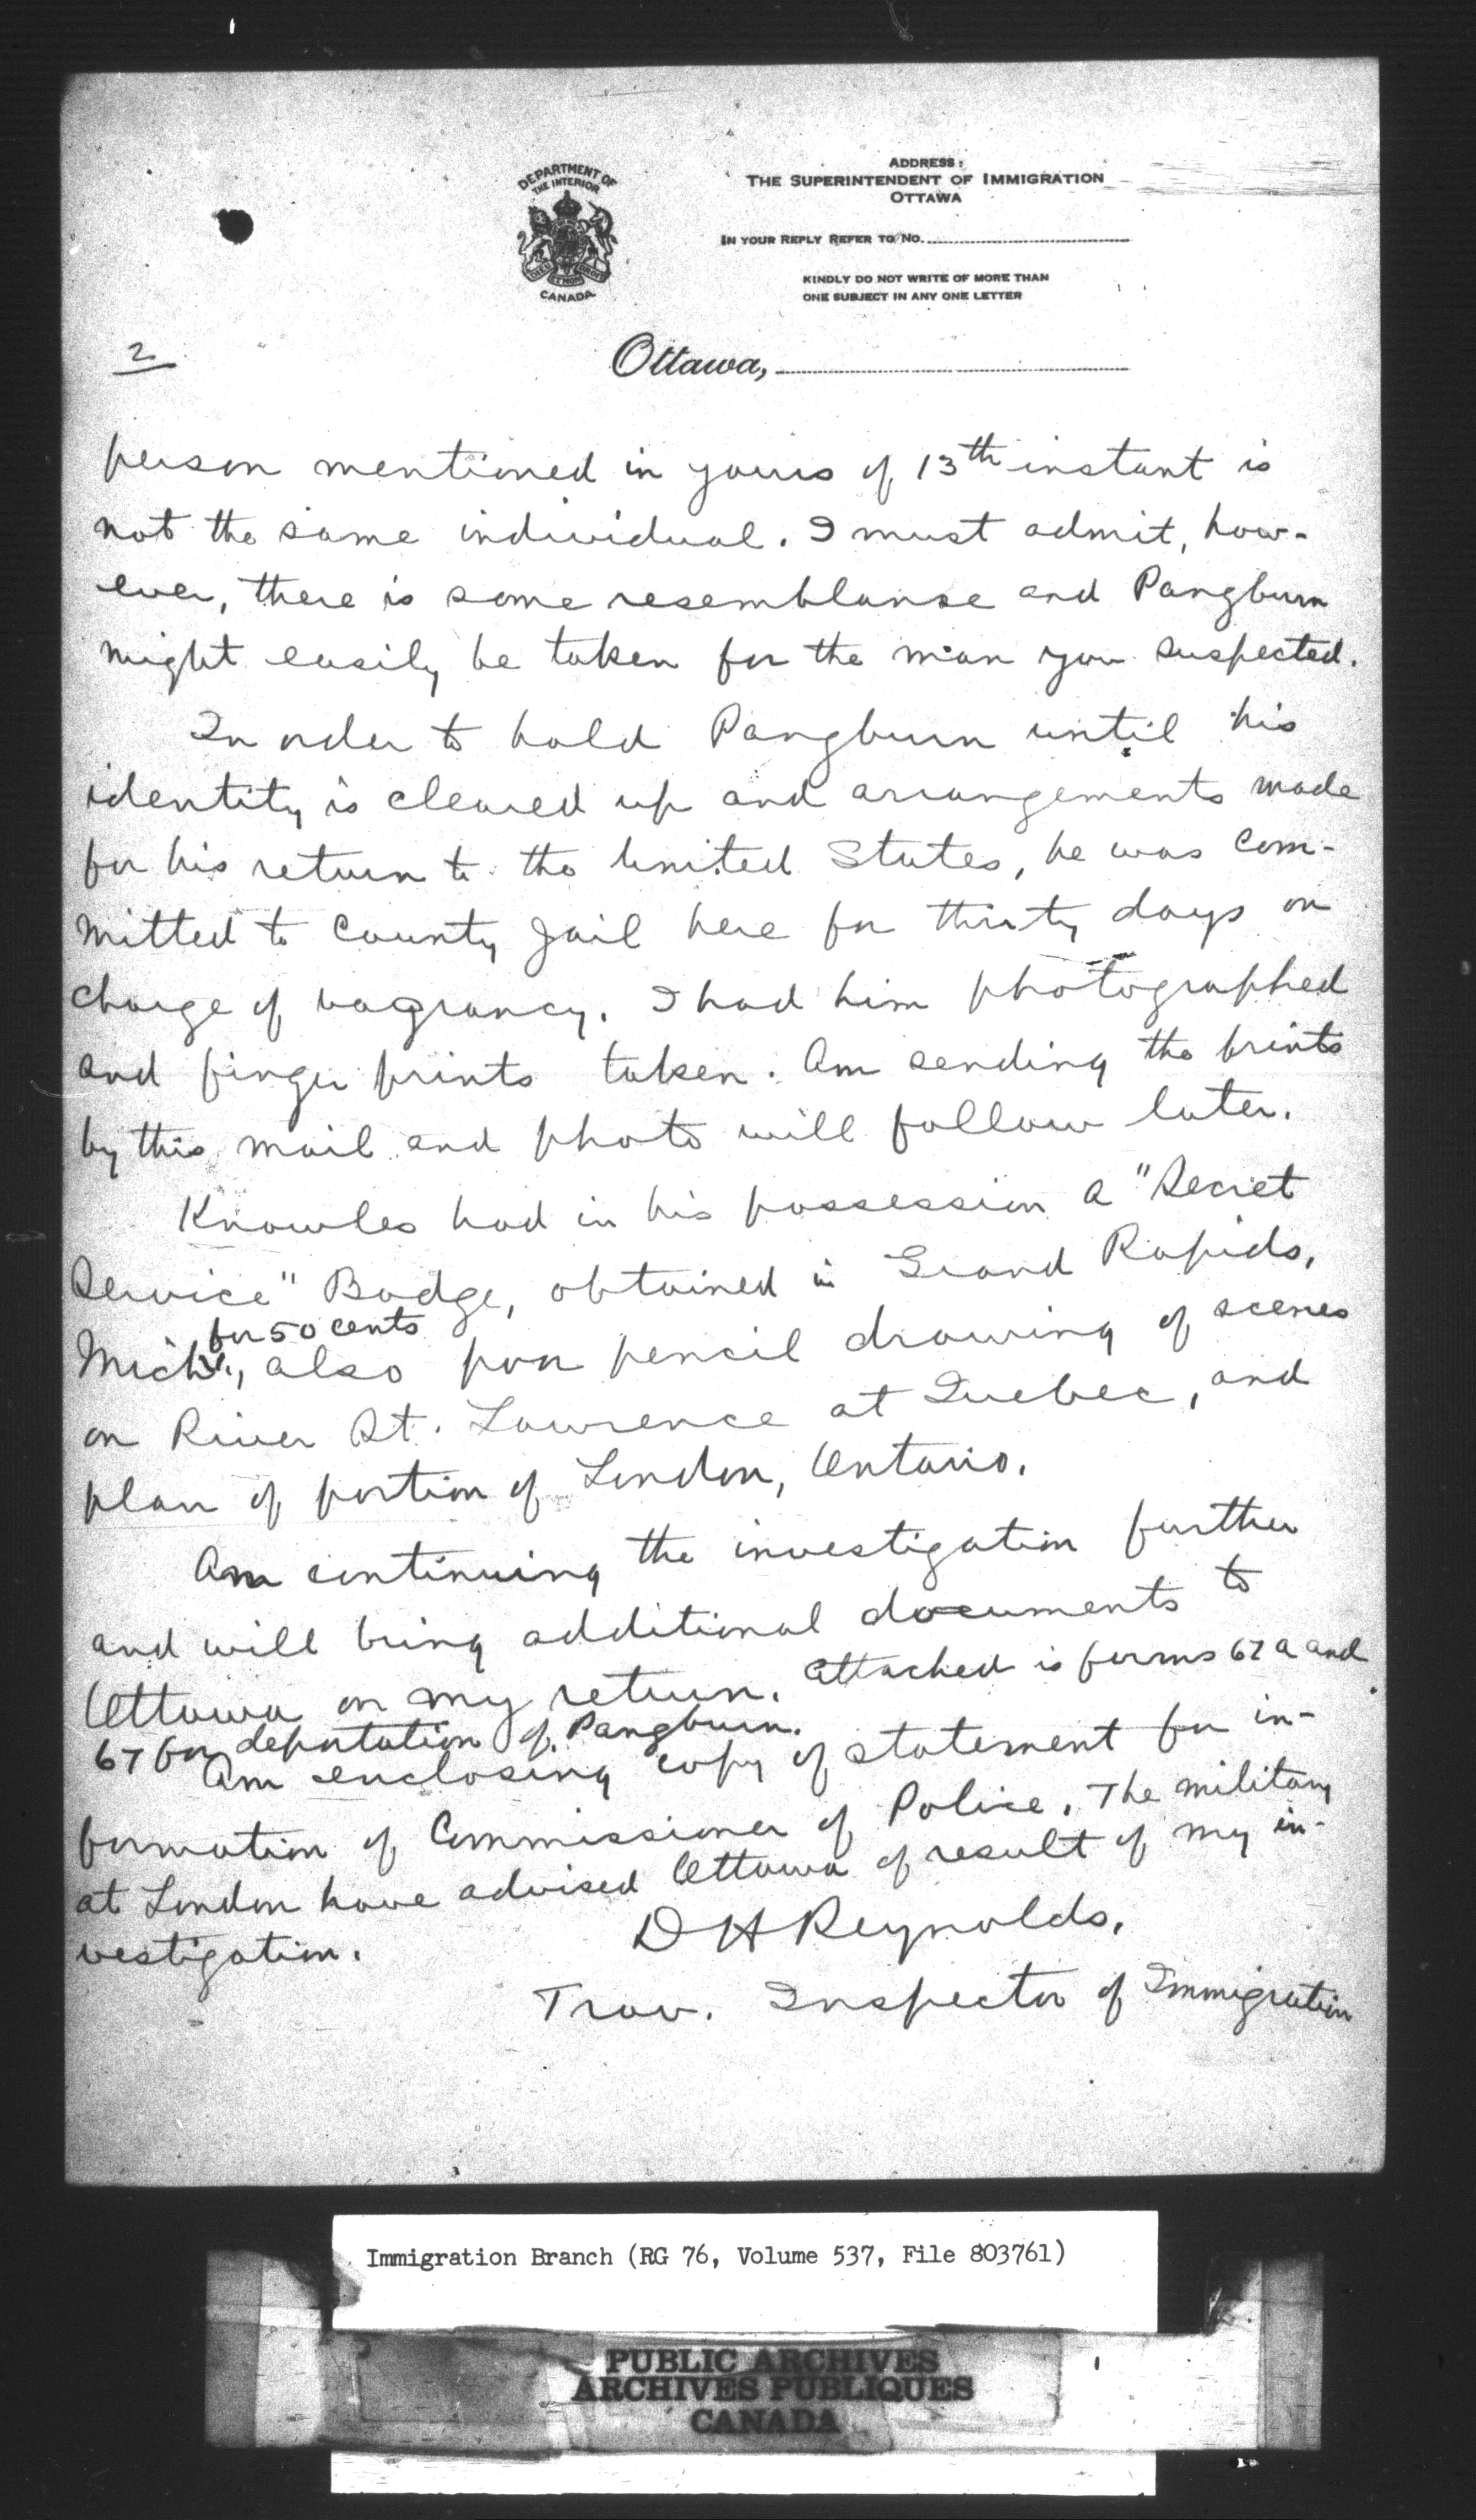 DEPARTMENT OF
THE INTERIOR
CANADA
ADDRESS:
THE SUPERINTENDENT OF IMMIGRATION
OTTAWA
IN YOUR REPLY REFER TO NO.
KINDLY DO NOT WRITE OF MORE THAN
ONE SUBJECT IN ANY ONE LETTER
2
Ottawa,
person mentioned in yours of 13th instant is
not the same individual. I must admit, how-
ever, there is some resemblanse and Pangburn
might easily be taken for the man you suspected.
In order to hold Pangburn until his
identity is cleared up and arrangements made
for his return to the United States, he was com-
mitted to County Jail here for thirty days on
charge of vagrancy. I had him photographed
and finger prints taken. Am sending the prints
by this mail and photo will follow later.
Knowles had in his possession a "Secret
Service" Badge, obtained in Grand Rapids,
for 50 cents
Mich., also poor pencil drawing of scenes
on River St. Lawrence at Quebec, and
plan of portion of London, Ontario.
Am continuing the investigation further
and will bring additional documents to
Ottawa on my return. Attached is forms 67 a and
67 for deportation of Pangburn.
Am enclosing copy of statement for in-
formation of Commissioner of Police. The military
at London have advised Ottawa of result of my in-
vestigation.
D H Reynolds.
Trav. Inspector of Immigration
Immigration Branch (RG 76, Volume 537, File 803761)
PUBLIC ARCHIVES
ARCHIVES PUBLIQUES
CANADA